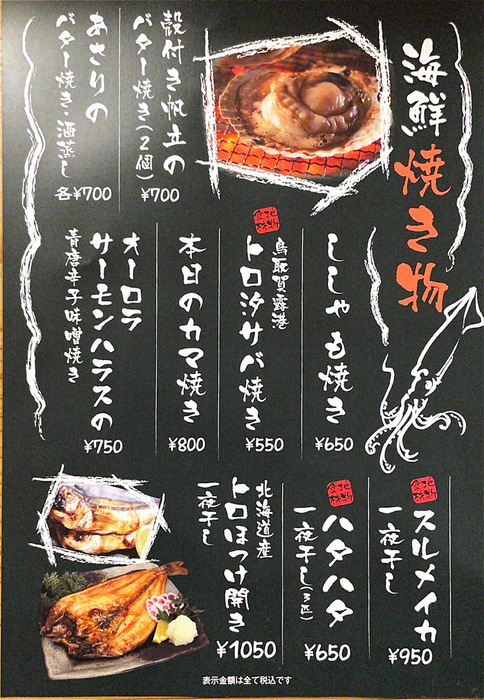 海鮮焼き物
殻付き帆立の
バター焼き(2個)
¥700
あさりの
バター焼き・酒蒸し
各¥700
ししゃも焼き
¥650
地物
鳥取賀露港
トロ汐サバ焼き
¥550
本日のカマ焼き
¥800
オーロラ
サーモンハラスの
青唐辛子味噌焼き
¥750
スルメイカ
一夜干し
¥950
ハタハタ
一夜干し(3匹)
¥650
北海道産
トロほっけ開き
一夜干し
¥1050
表示金額は全て税込です